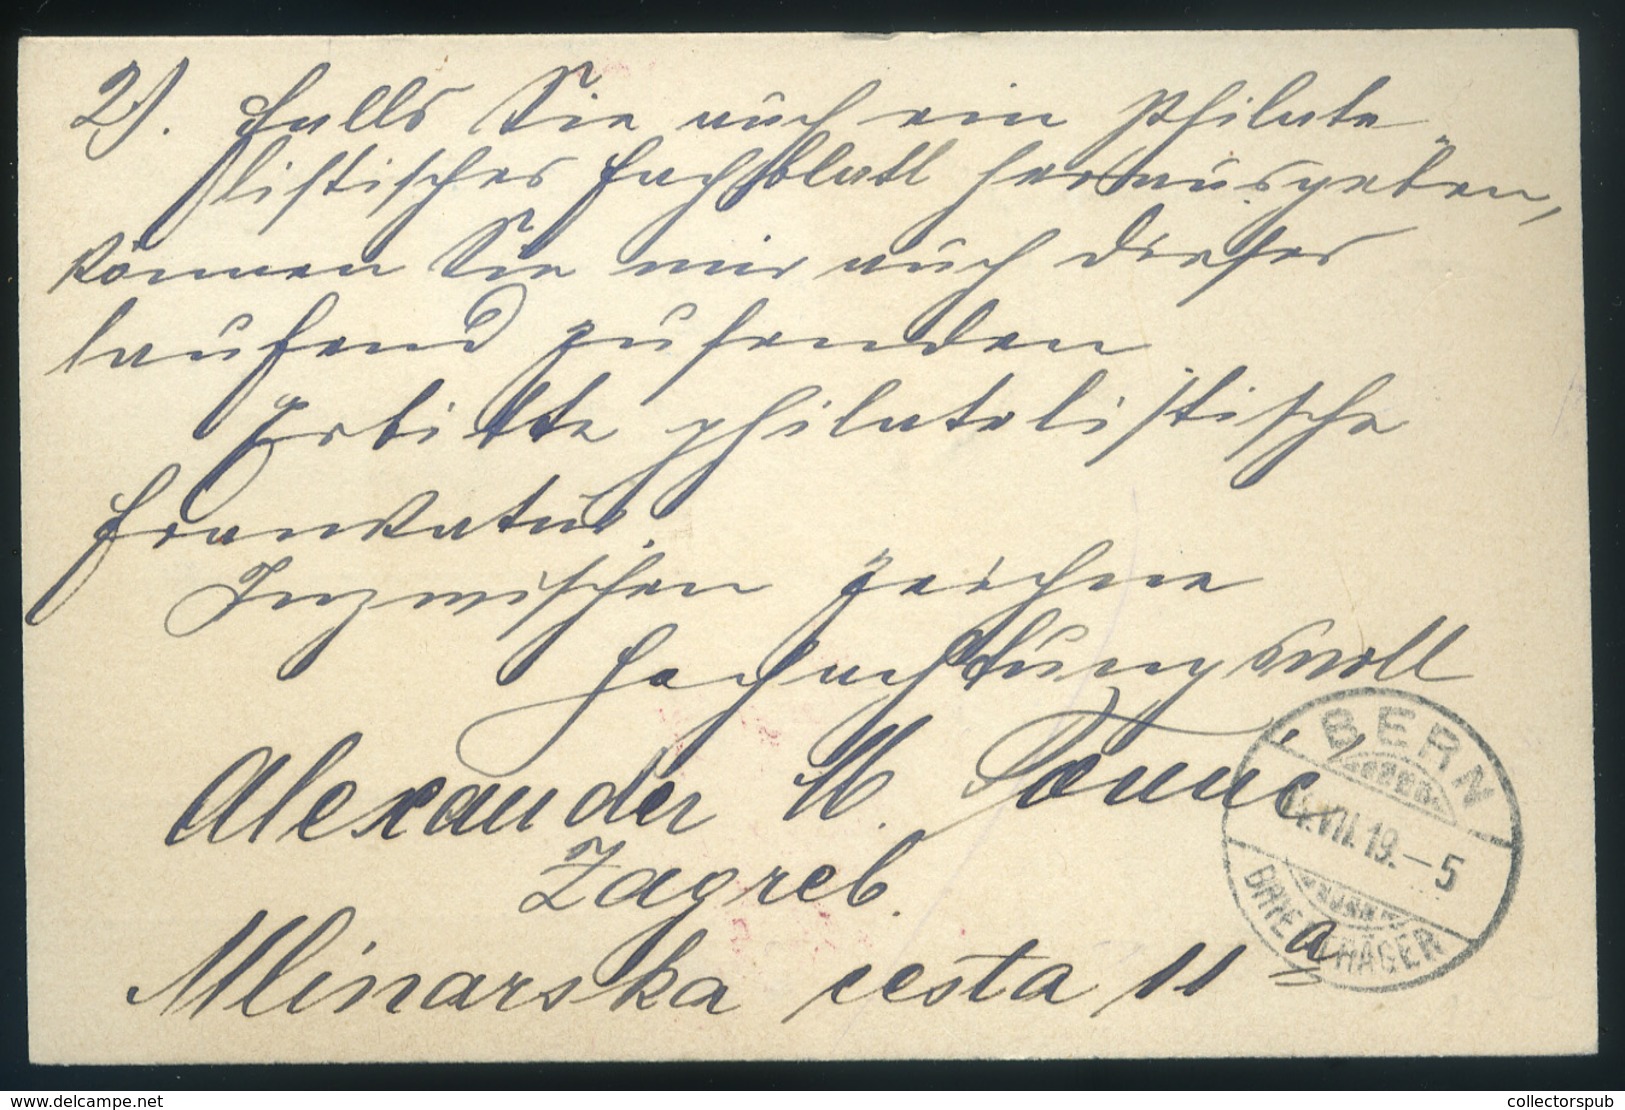 2). Falls Sie auch ein Philate„
listisches Fachblatt herausgeben,
können Sie mir auch dieses
laufend zusenden.
Erbitte philatelistische
Frankatur.
Inzwischen zeichne
hochachtungsvoll
Alexander M.
Zagreb.
Mlinarska cesta 11a
BERN
VII.19.–5
BRIEFTRÄGER
delcampe.net
collectorspub